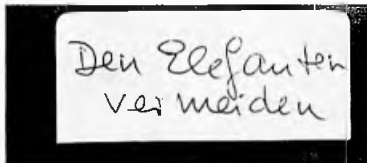 Den Elefanten
vermeiden